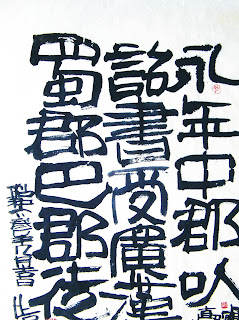 永年中郡以
詔書受廣漢
蜀郡巴郡徒